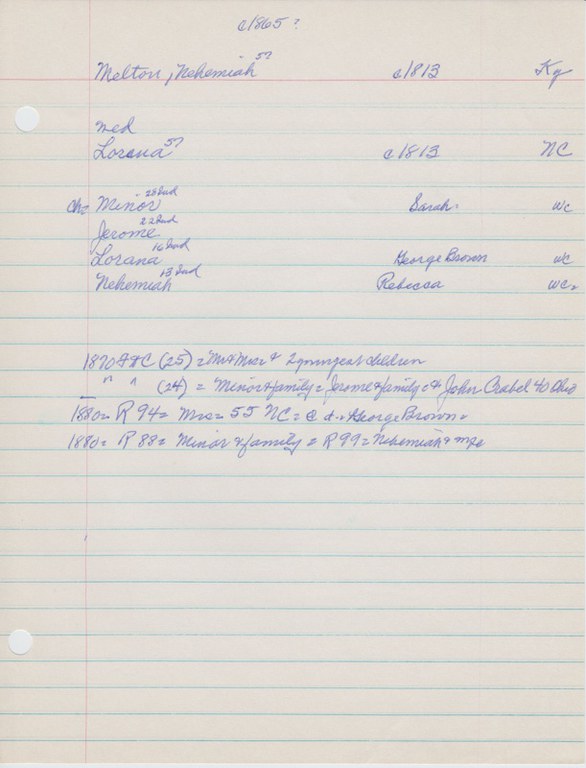 c1865?
Melton, Nehemiah 57 c1813 Ky
med
Lorena 57 c1813 NC
ch= Minor 25 Ind Sarah. wc
Jerome 22 Ind
Lorana 16 Ind George Brown wc
Nehemiah 13 Ind Rebecca wc.
1870 (25) = Mr & Mrs & 2 youngest children
" " (24) = Minor & family = Jerome & family & John Crabel 40 Ohio
1880= R 94= Mrs= 55 NC= @ George Brown.
1880= R 88= Minor & family = R 99= Nehemiah &